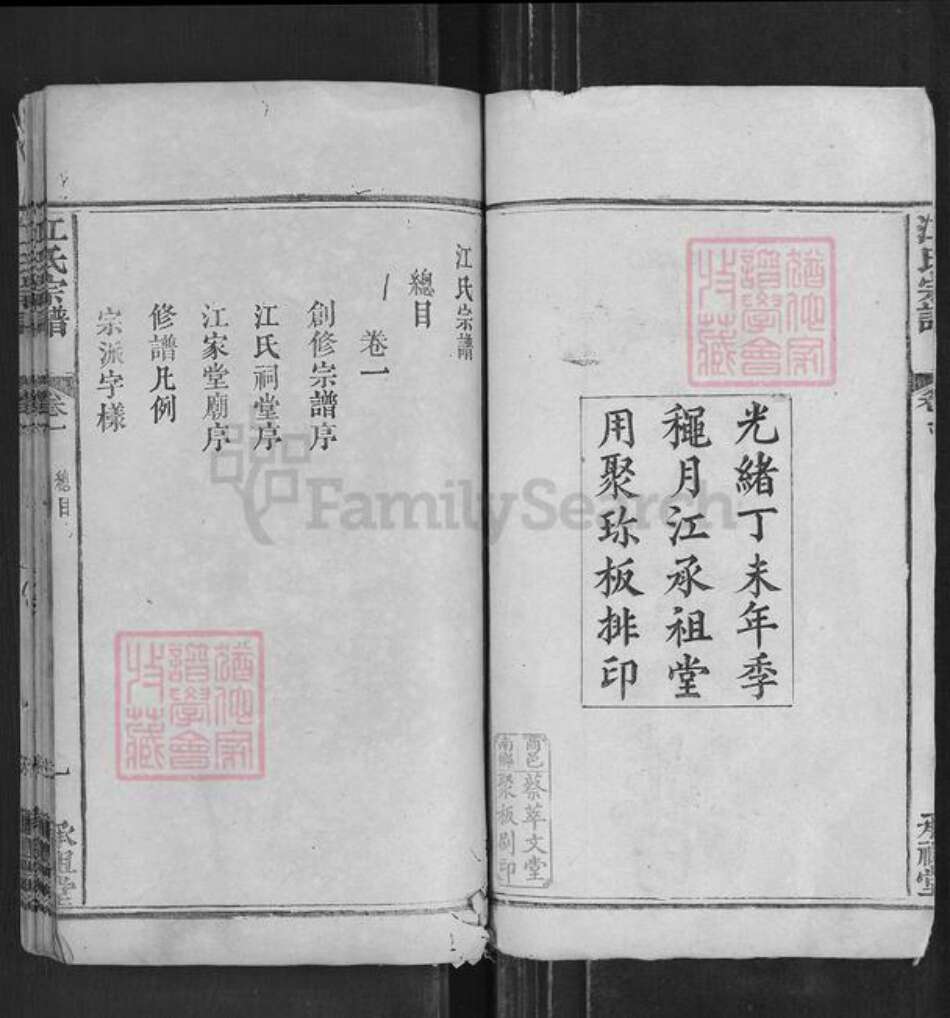 光緒丁未年季
穐月江承祖堂
用聚珎板排印
商邑蔡萃文堂
南鄉聚板刷印
江氏宗譜
總目
卷一
創修宗譜序
江氏祠堂序
江家堂廟序
修譜凡例
宗派字樣
江氏宗譜
卷一
總目
一
承祖堂
江氏宗譜
承祖堂
譜學會
收藏
譜學會
收藏
FamilySearch